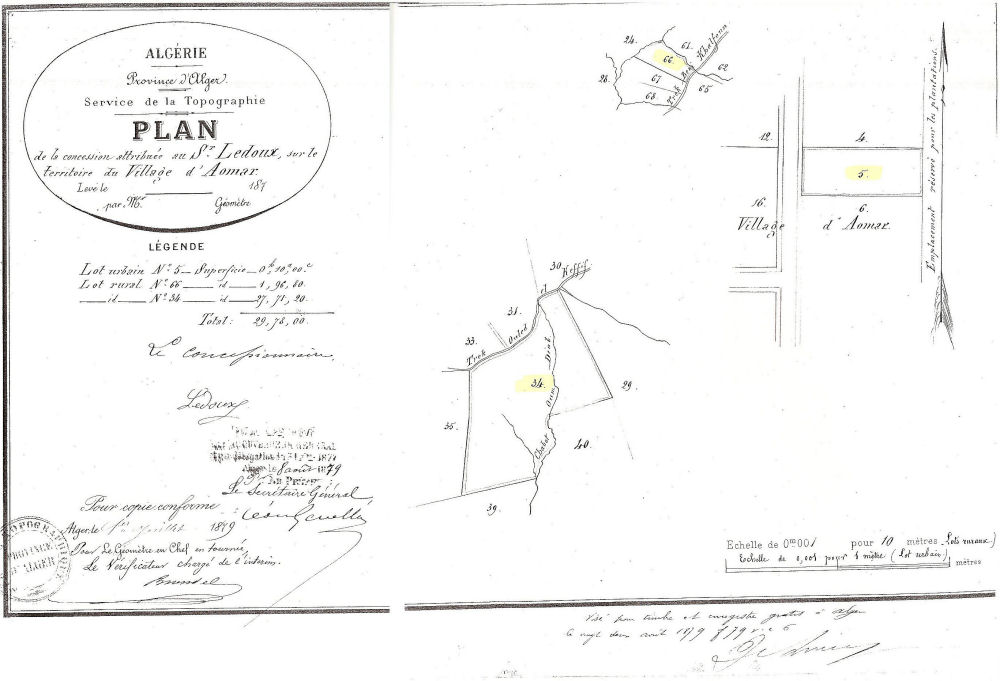 ALGÉRIE
Province d'Alger.
Service de la Topographie
PLAN
de la concession attribuée au Sr. Ledoux, sur le
territoire du Village d'Aomar.
Levé le 187
par Mr. Géomètre
LÉGENDE
Lot urbain No. 5 — Superficie — 0h, 10a, 00.c
Lot rural No. 66 — id — 1, 96, 80.
— id — No. 34 — id — 27, 71, 20.
Total: 29, 78, 00.
Le concessionnaire,
Ledoux
Alger, le 8 août 1879
Le Secrétaire Général,
Pour copie conforme
Alger, le 1er Juillet 1879
Pour Le Géomètre en Chef en tournée,
Le Vérificateur chargé de l'intérim.
TOPOGRAPHIQUE
PROVINCE
D'ALGER
24.
61.
66.
28.
67.
62
68.
65
Trek Beni Khalfoun
12.
4.
5.
16.
6.
Village d'Aomar.
Emplacement réservé pour les plantations.
30.
31.
33.
Trek Ouled el Keffif
34.
29.
35.
40.
39.
Chabet Oum Dial
Echelle de 0m 001 pour 10 mètres (Lots ruraux)
Echelle de 0,001 pour 1 mètre (Lot urbain)
mètres
Visé pour timbre et enregistré gratis à Alger
le vingt deux août 1879 f 79